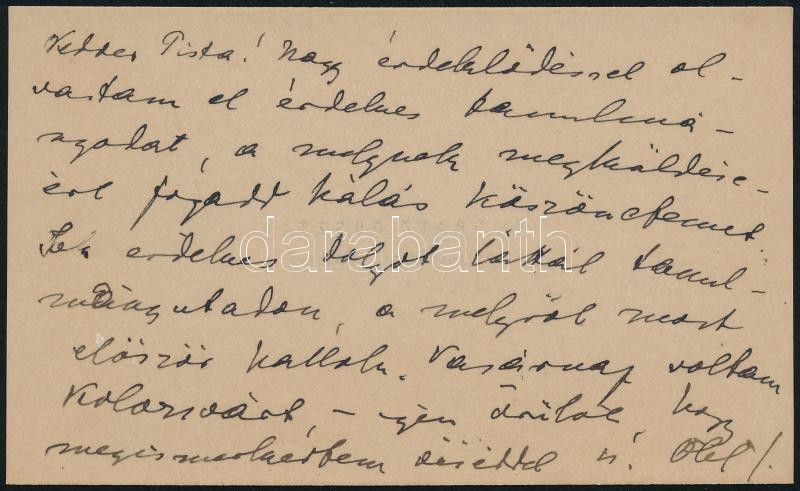 Kedves Pista! Nagy érdeklődéssel ol-
vastam el érdekes tanulmá-
nyodat, a melynek megküldésé-
ért fogadd hálás köszönetemet.
Sok érdekes dolgot láttál tanul-
mányutadon, a melyről most
először hallok. Vasárnap voltam
Kolozsvárt, – igen örülök, hogy
megismerkedtem öcséddel is. Ölel /.
darabanth